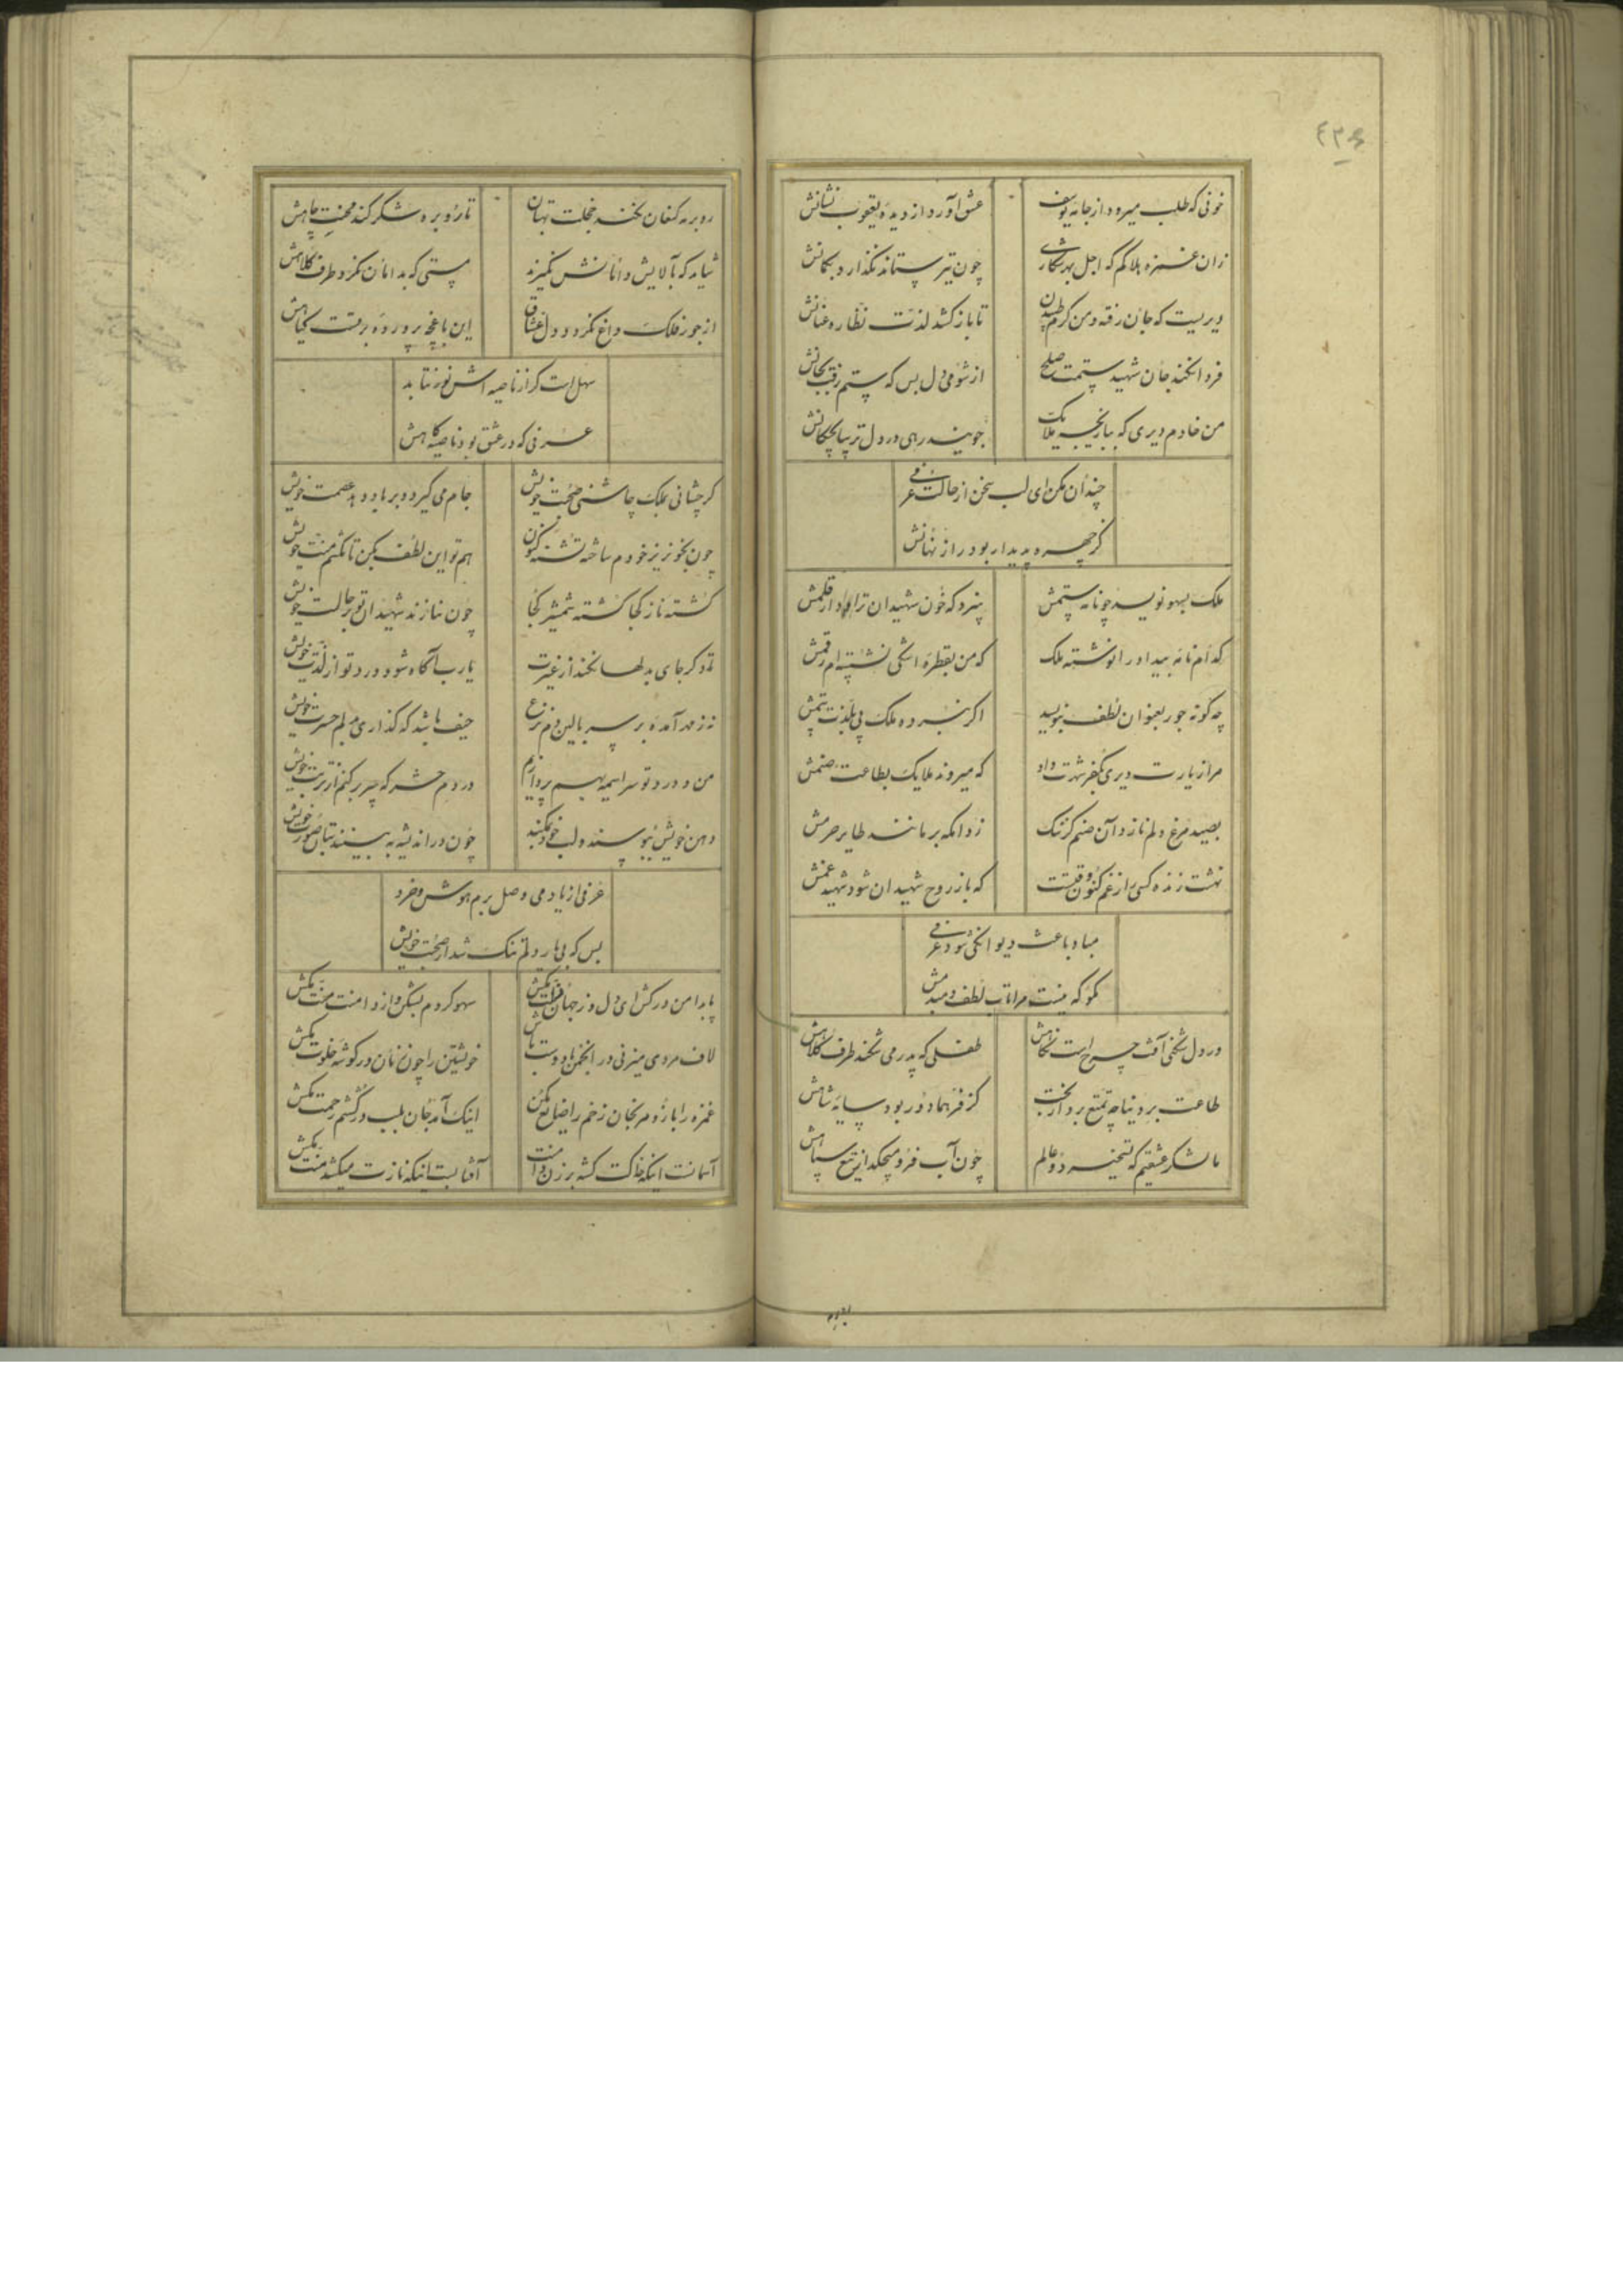 ٤٣٤
خونی که طلب میرود از جامه یوسف عشق آورد از دیده یعقوب نشانش
زان غمزه هلاکم که اجل بهر شکاری چون تیر ستاند نگذارد بکمانش
دیریست که جان رفته و من گرم طپیدن تا باز کشد لذت نظاره عنانش
فردا نکند جان شهید ستمت صلح از شومی دل بس که ستم رفت بجانش
من خادم دیری که ببازیچه ملایک جویند رهی در دل ترسا بچکانش
چندان مکن ای لب سخن از حالت عرفی
کز چهره پدیدار بود راز نهانش
ملک بسهو نویسد چو نامه ستمش سزد که خون شهیدان تراود از قلمش
کدام نامه بیداد را نوشته ملک که من بقطره اشکی نشسته‌ام رقمش
چه گونه جور بعنوان لطف بنویسد اگر نبرده ملک پی بلذت ستمش
مرا زیارت دیری بکفر شهرت داد که میروند ملایک بطاعت صنمش
بصید مرغ دلم نازد آن صنم کز ننگ زدامگه برمانند طایر حرمش
نهشت زنده کسی را ز غم کنون وقتست که باز روح شهیدان شود شهید غمش
مباد باعث دیوانگی شود عرفی
مگو که نیست مرا تاب لطف دمبدمش
در دل شکنی آفت چرخ است نگاهش طفلی که پدر می شکند طرف کلاهش
طاعت برد اینجا چه تمتع برد از بخت کز فر هما دور بود سایه شاهش
ما لشکر عشقیم که تسخیر دو عالم چون آب فرو میچکد از تیغ سپاهش
رو بره
رو بره کنعان نکند خجلت بهتان تا رو بره شکر کند محنت چاهش
شاید که بآلایش دامانش نگیرند مستی که بدامان نگرد طرف کلاهش
از جور فلک داغ نگردد دل عشاق این باغچه پرورده برقست گیاهش
سهل است گر از ناصیه اش نور نتابد
عرفی که در عشق بود ناصیه کاهش
گر چشانی بملک چاشنی صحبت خویش جام می گیرد و بر باد دهد عصمت خویش
چون بخونریز خودم ساخته تشنه کنون هم تو این لطف بکن تا نکشم منت خویش
کشته ناز کجا کشته شمشیر کجا چون ننازند شهیدان تو بر حالت خویش
تا دگر جای بدلها نکند از غیرت یارب آگاه شود درد تو از لذت خویش
نه ز مهر آمده بر سر بالین دم نزع حیف باشد که گذاری بدلم حسرت خویش
من و درد تو سراسیمه بهم پردازیم در دم حشر که سر برکنم از تربت خویش
دهن خویش ببوسند و لب خود بمکند چون در اندیشه ببینند بتان صورت خویش
عرفی از یاد می وصل برم هوش و خرد
بس که بی یار دلم تنگ شد از صحبت خویش
پا بدامن درکش ای دل وز جهان دامن بکش سهو کردم بشکن و از دامنت منت بکش
لاف مردی میزنی در انجمن با دوست باش خویشتن را چون زنان در گوشه خلوت بکش
غمزه را بازو مرنجان زخم را ضایع مکن اینک آمد جان بلب درکشتنم زحمت مکش
آسمانت اینکه خاکت کشته بر زن دامنت آفتابست اینکه نازت میکشد منت بکش